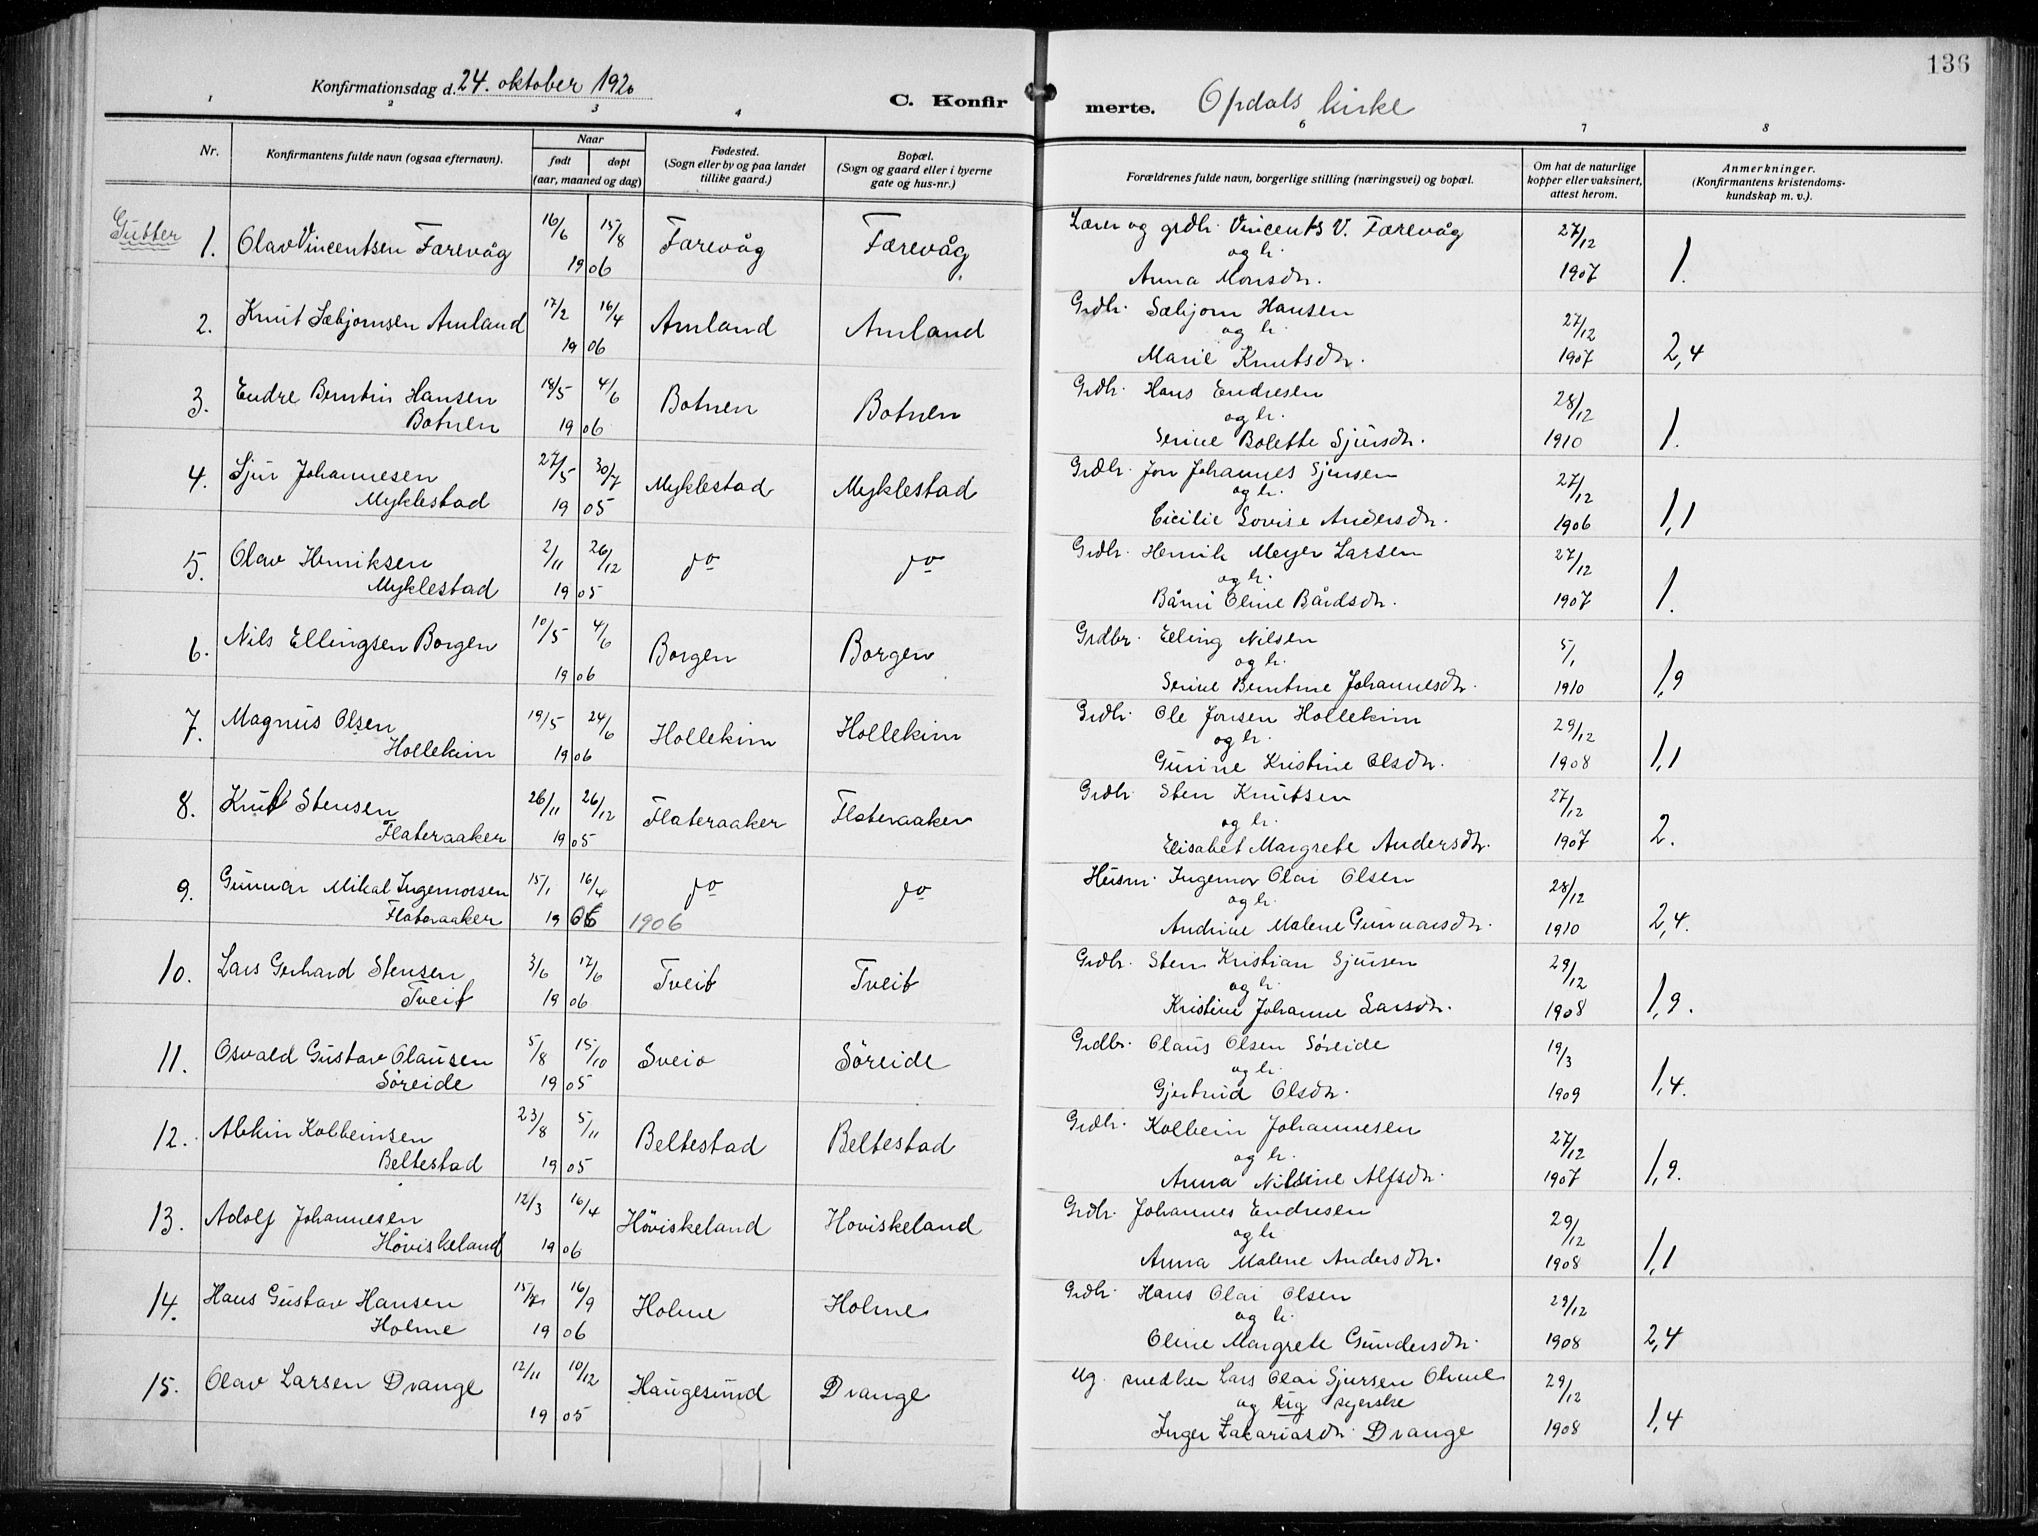 136
Konfirmationsdag d. 24. oktober 1920
C. Konfirmerte. Opdals kirke
1 2 3 4 6 7 8
Nr. Konfirmantens fulde navn (ogsaa efternavn). Naar født døpt (aar, maaned og dag) Fødested. (Sogn eller by og paa landet tillike gaard.) Bopæl. (Sogn og gaard eller i byerne gate og hus-nr.) Forældrenes fulde navn, borgerlige stilling (næringsvei) og bopæl. Om hat de naturlige kopper eller vaksinert, attest herom. Anmerkninger. (Konfirmantens kristendoms-kundskap m. v.).
Gutter
1. Olav Vincentsen Færevåg 16/6 15/8 Færevåg Færevåg Lærer og grdbr. Vincents V. Færevåg 27/12
1906 og h. Anna Monsdr. 1907 1.
2. Knut Sæbjørnsen Amland 17/2 16/4 Amland Amland Grdbr. Sæbjørn Hansen 27/12
1906 og h. Marie Knutsdr. 1907 2,4
3. Endre Berntin Hansen 18/5 4/6 Botnen Botnen Grdbr. Hans Endresen 28/12
Botnen 1906 og h. Serine Bolette Sjursdr. 1910 1.
4. Sjur Johannesen 27/5 30/7 Myklestad Myklestad Grdbr. Jon Johannes Sjursen 27/12
Myklestad 1905 og h. Cicilie Lovise Andersdr. 1906 1,1
5. Olav Henriksen 2/11 26/12 do do Grdbr. Henrik Meyer Larsen 27/12
Myklestad 1905 og h. Båmi Eline Bårdsdr. 1907 1.
6. Nils Ellingsen Borgen 10/5 4/6 Borgen Borgen Grdbr. Elling Nilsen 5/1
1906 og h. Serine Berntine Johannesdr. 1910 1,9
7. Magnus Olsen 19/5 24/6 Hollekim Hollekim Grdbr. Ole Jonsen Hollekim 29/12
Hollekim 1906 og h. Gurine Kristine Olsdr. 1908 1,1
8. Knut Stensen 26/11 26/12 Flateraaker Flateraaker Grdbr. Sten Knutsen 27/12
Flateraaker 1905 og h. Elisabet Margrete Andersdr. 1907 2.
9. Gunnar Mikal Ingemorsen 15/1 16/4 do do Husm. Ingemor Olai Olsen 28/12
Flateraaker 1906 1906 og h. Andrine Malene Gunnarsdr. 1910 2,4.
10. Lars Gerhard Stensen 3/6 17/6 Tveit Tveit Grdbr. Sten Kristian Sjursen 29/12
Tveit 1906 og h. Kristine Johanne Larsdr. 1908 1,9.
11. Osvald Gustav Clausen 5/8 15/10 Sveio Søreide Grdbr. Claus Olsen Søreide 19/3
Søreide 1905 og h. Gjertrud Olsdr. 1909 1,4.
12. Alvkin Kolbeinsen 23/8 5/11 Beltestad Beltestad Grdbr. Kolbein Johannesen 27/12
Beltestad 1905 og h. Anna Nilsine Alfsdr. 1907 1,9.
13. Adolf Johannesen 12/3 16/4 Høviskeland Hoviskeland Grdbr. Johannes Endresen 29/12
Høviskeland 1906 og h. Anna Malene Andersdr. 1908 1,1
14. Hans Gustav Hansen 15/7 16/9 Holme Holme Grdbr. Hans Olai Olsen 29/12
Holme 1906 og h. Oline Margrete Gundersdr. 1908 2,4
15. Olav Larsen Drange 12/11 10/12 Haugesund Drange Ug. snedker Lars Olai Sjursen Ohme 29/12
1905 og ug syerske Inger Zakariasdr. Drange 1908 1,4